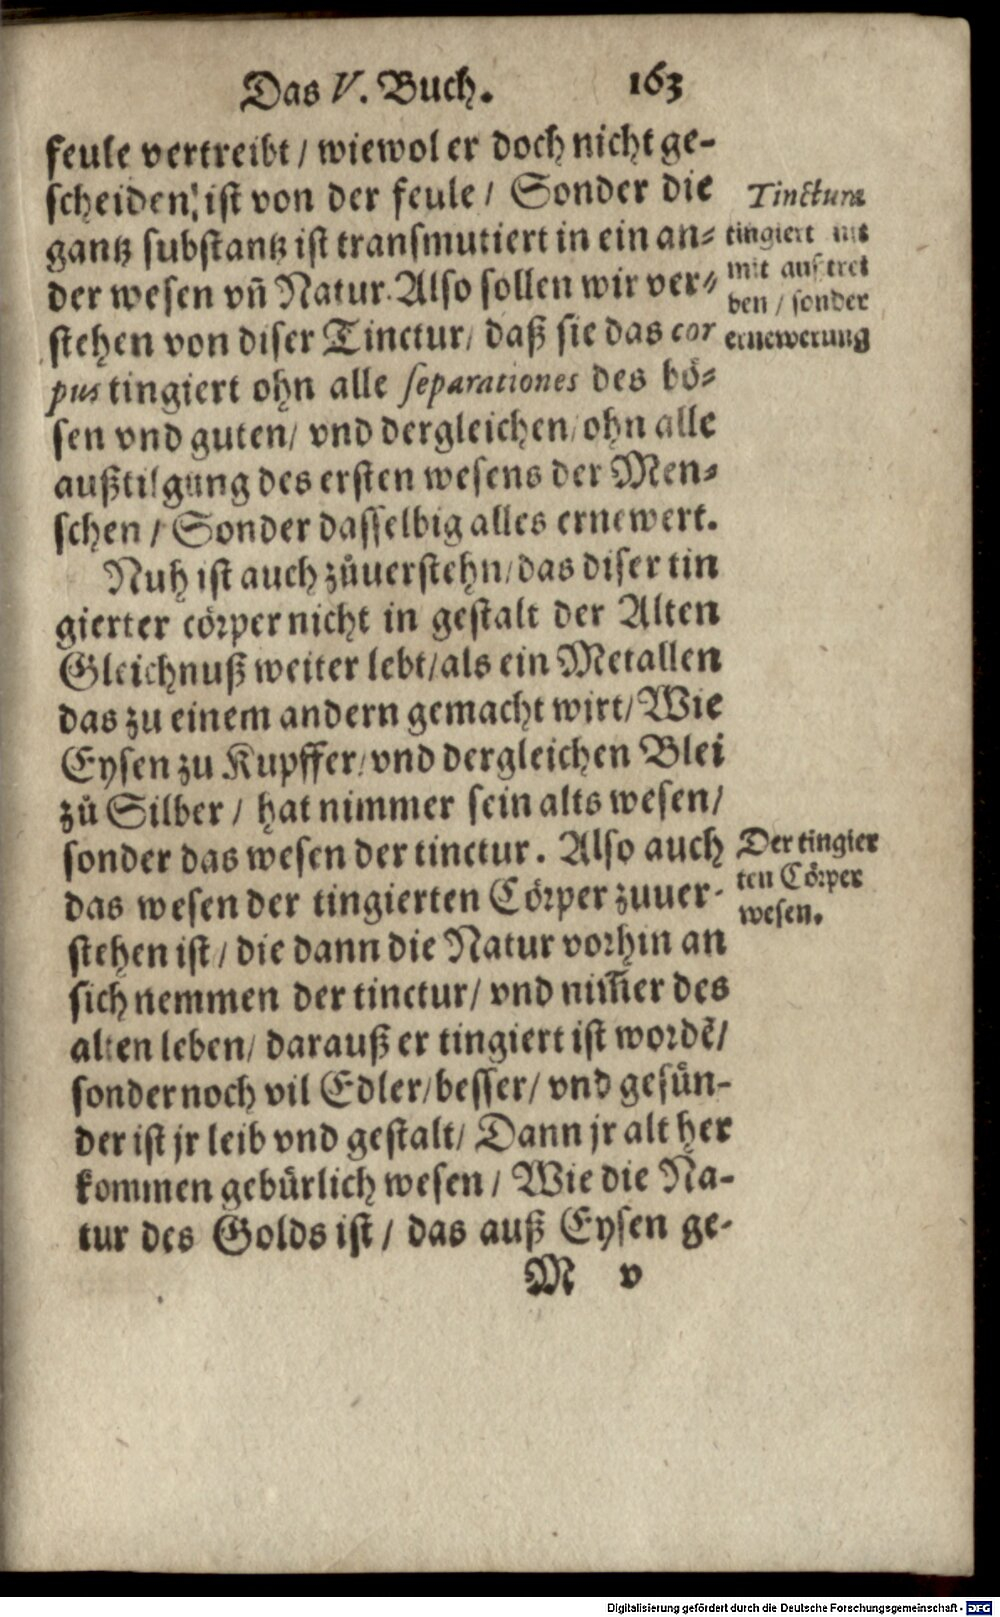 Das V. Buch. 163
feule vertreibt / wiewol er doch nicht ge-
scheiden, ist von der feule / Sonder die
gantz substantz ist transmutiert in ein an-
der wesen vñ Natur. Also sollen wir ver-
stehen von diser Tinctur / daß sie das cor
pus tingiert ohn alle separationes des bö-
sen vnd guten / vnd dergleichen / ohn alle
außtilgung des ersten wesens der Men-
schen / Sonder dasselbig alles ernewert.
Nuh ist auch zůuerstehn / das diser tin
gierter cörper nicht in gestalt der Alten
Gleichnuß weiter lebt / als ein Metallen
das zu einem andern gemacht wirt / Wie
Eysen zu Kupffer / vnd dergleichen Blei
zů Silber / hat nimmer sein alts wesen /
sonder das wesen der tinctur. Also auch
das wesen der tingierten Cörper zuuer-
stehen ist / die dann die Natur vorhin an
sich nemmen der tinctur / vnd nim̃er des
alten leben / darauß er tingiert ist wordẽ /
sonder noch vil Edler / besser / vnd gesün-
der ist jr leib vnd gestalt / Dann jr alt her
kommen gebürlich wesen / Wie die Na-
tur des Golds ist / das auß Eysen ge-
M v
Tinctura
tingiert nit
mit austrei
ben / sonder
ernewerung
Der tingier
ten Cörper
wesen.
Digitalisierung gefördert durch die Deutsche Forschungsgemeinschaft - DFG